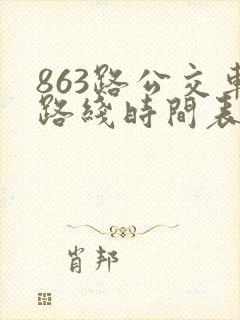 863路公交車
路綫時間表
肖邦